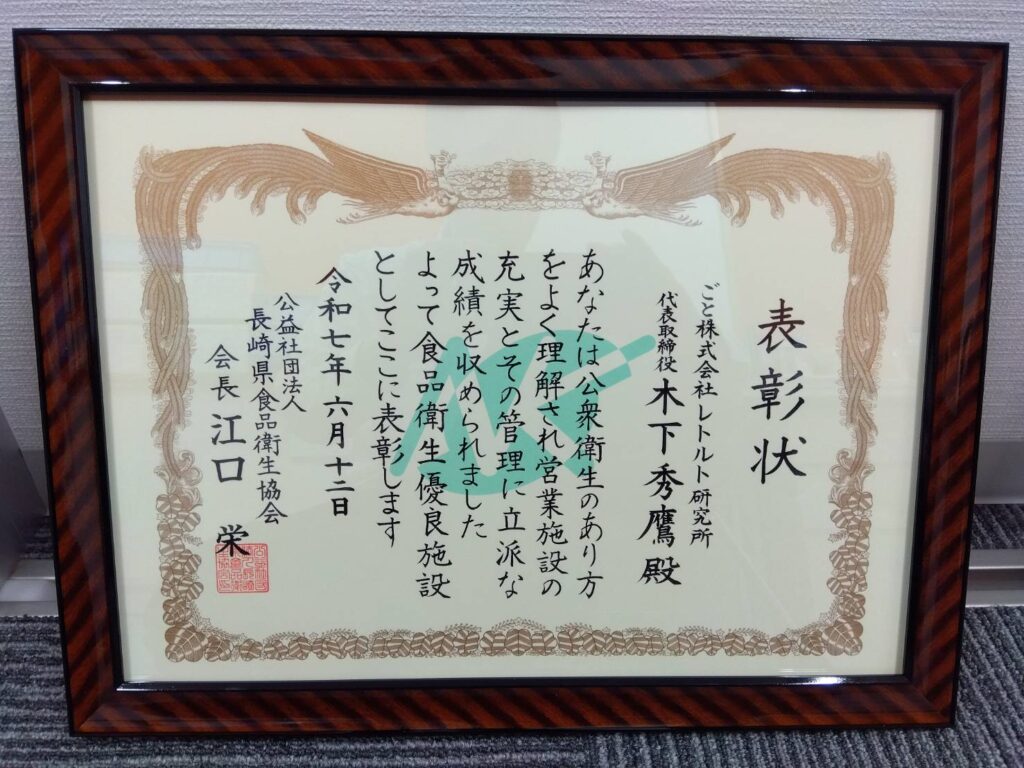 表彰状
ごと株式会社レトルト研究所
代表取締役 木下秀鷹殿
あなたは公衆衛生のあり方
をよく理解され営業施設の
充実とその管理に立派な
成績を収められました
よって食品衛生優良施設
としてここに表彰します
令和七年六月十二日
公益社団法人
長崎県食品衛生協会
会長 江口 栄